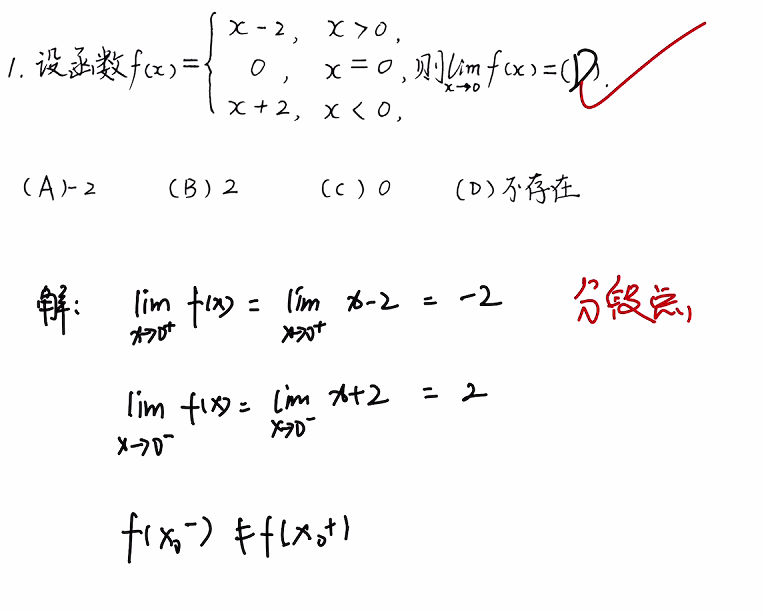 1. 设函数f(x)={ x-2, x>0,
0, x=0, 则lim x→0 f(x)=(D).
x+2, x<0,
(A)-2 (B) 2 (C) 0 (D)不存在
解: lim x→0⁺ f(x) = lim x→0⁺ x-2 = -2 分段点,
lim x→0⁻ f(x) = lim x→0⁻ x+2 = 2
f(x₀⁻) ≠ f(x₀⁺)